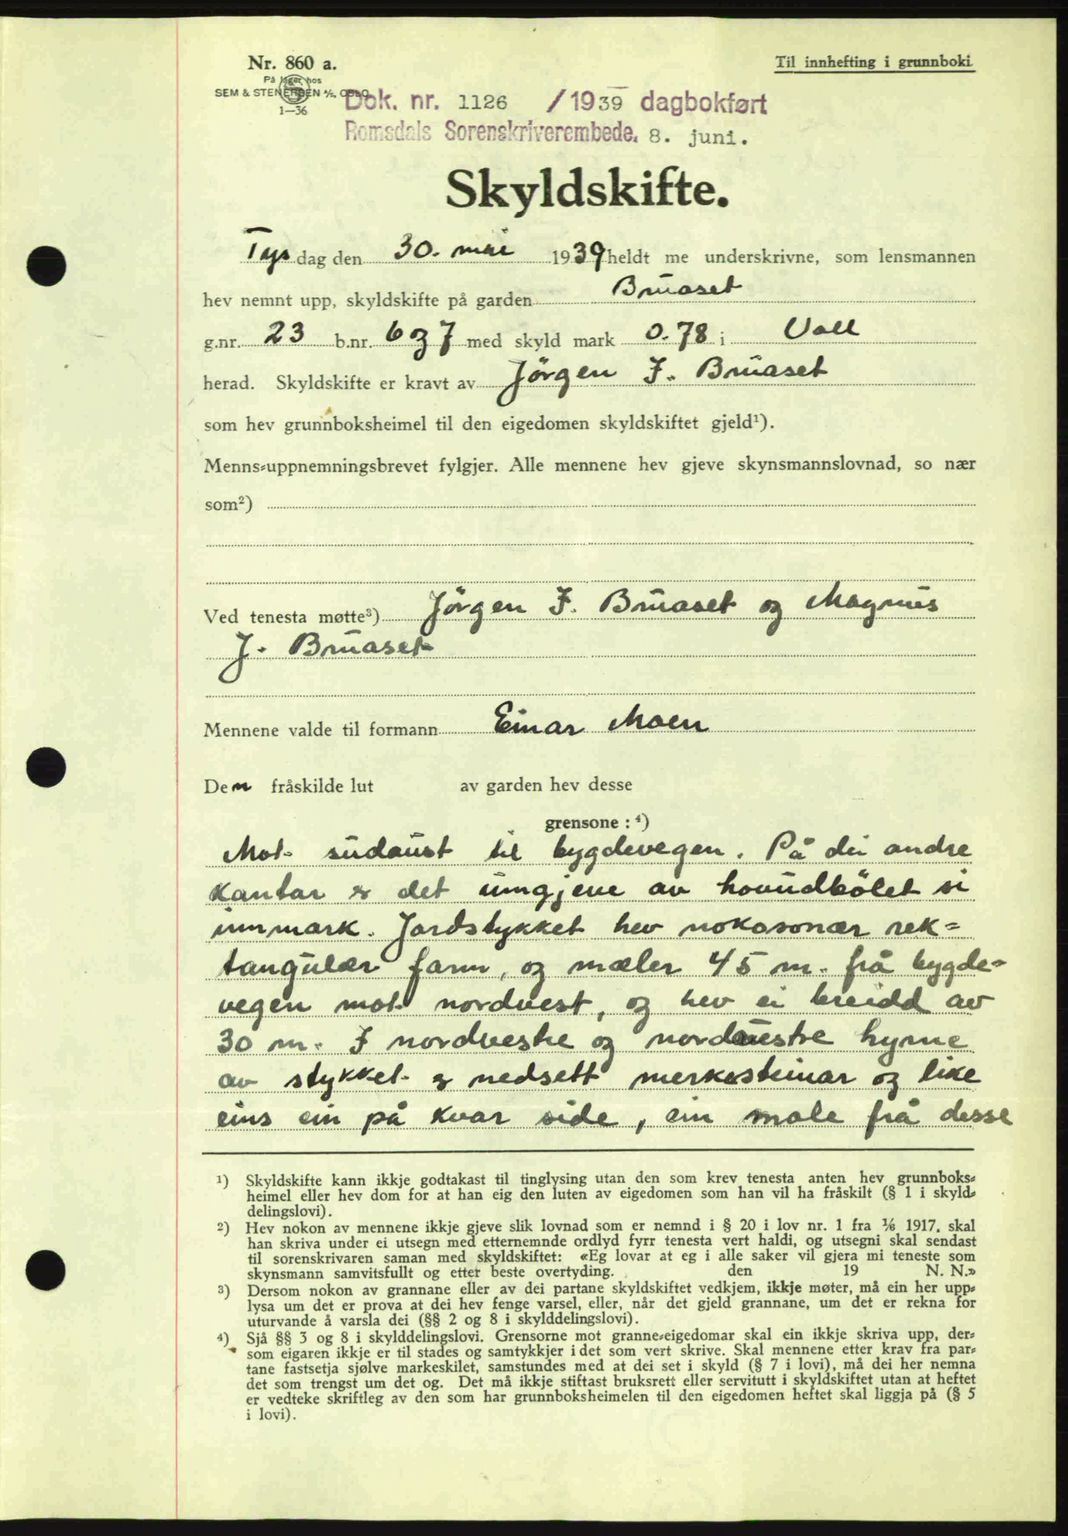 Nr. 860 a.
Til innhefting i grunnboki
På lager hos
SEM & STENERSEN A/S, OSLO
1—36
Dok. nr. 1126 /1939 dagbokført
Romsdals Sorenskriverembede. 8. juni.
Skyldskifte.
Tysdag den 30. mai 1939 heldt me underskrivne, som lensmannen
hev nemnt upp, skyldskifte på garden Bruaset
g.nr. 23 b.nr. 6 og 7 med skyld mark 0.78 i Voll
herad. Skyldskifte er kravt av Jörgen J. Bruaset
som hev grunnboksheimel til den eigedomen skyldskiftet gjeld¹).
Menns-uppnemningsbrevet fylgjer. Alle mennene hev gjeve skynsmannslovnad, so nær
som²)
Ved tenesta møtte³) Jörgen J. Bruaset og Magnus
J. Bruaset
Mennene valde til formann Einar Moen
Den fråskilde lut av garden hev desse
grensone : ⁴)
Mot sudaust til bygdevegen. På dei andre
kantar er det umgjeve av hovudbölet si
innmark. Jordstykket hev nokosonær rek-
tangulær form, og mæler 45 m. frå bygde-
vegen mot nordvest, og hev ei breidd av
30 m. I nordvestre og nordaustre hyrne
av stykket er nedsett merkesteinar og like
eins ein på kvar side, ein male frå desse
¹) Skyldskifte kann ikkje godtakast til tinglysing utan den som krev tenesta anten hev grunnboks-
heimel eller hev dom for at han eig den luten av eigedomen som han vil ha fråskilt (§ 1 i skyld-
delingslovi).
²) Hev nokon av mennene ikkje gjeve slik lovnad som er nemnd i § 20 i lov nr. 1 fra ¹/₆ 1917, skal
han skriva under ei utsegn med etternemnde ordlyd fyrr tenesta vert haldi, og utsegni skal sendast
til sorenskrivaren saman med skyldskiftet: «Eg lovar at eg i alle saker vil gjera mi teneste som
skynsmann samvitsfullt og etter beste overtyding. den 19 N. N.»
³) Dersom nokon av grannane eller av dei partane skyldskiftet vedkjem, ikkje møter, må ein her upp-
lysa um det er prova at dei hev fenge varsel, eller, når det gjeld grannane, um det er rekna for
uturvande å varsla dei (§§ 2 og 8 i skylddelingslovi).
⁴) Sjå §§ 3 og 8 i skylddelingslovi. Grensorne mot granne-eigedomar skal ein ikkje skriva upp, der-
som eigaren ikkje er til stades og samtykkjer i det som vert skrive. Skal mennene etter krav fra par-
tane fastsetja sjølve markeskilet, samstundes med at dei set i skyld (§ 7 i lovi), må dei her nemna
det som trengst um det og. Det må ikkje stiftast bruksrett eller servitutt i skyldskiftet utan at heftet
er vedteke skriftleg av den som har grunnboksheimelen til den eigedomen heftet skal liggja på (§ 5
i lovi).